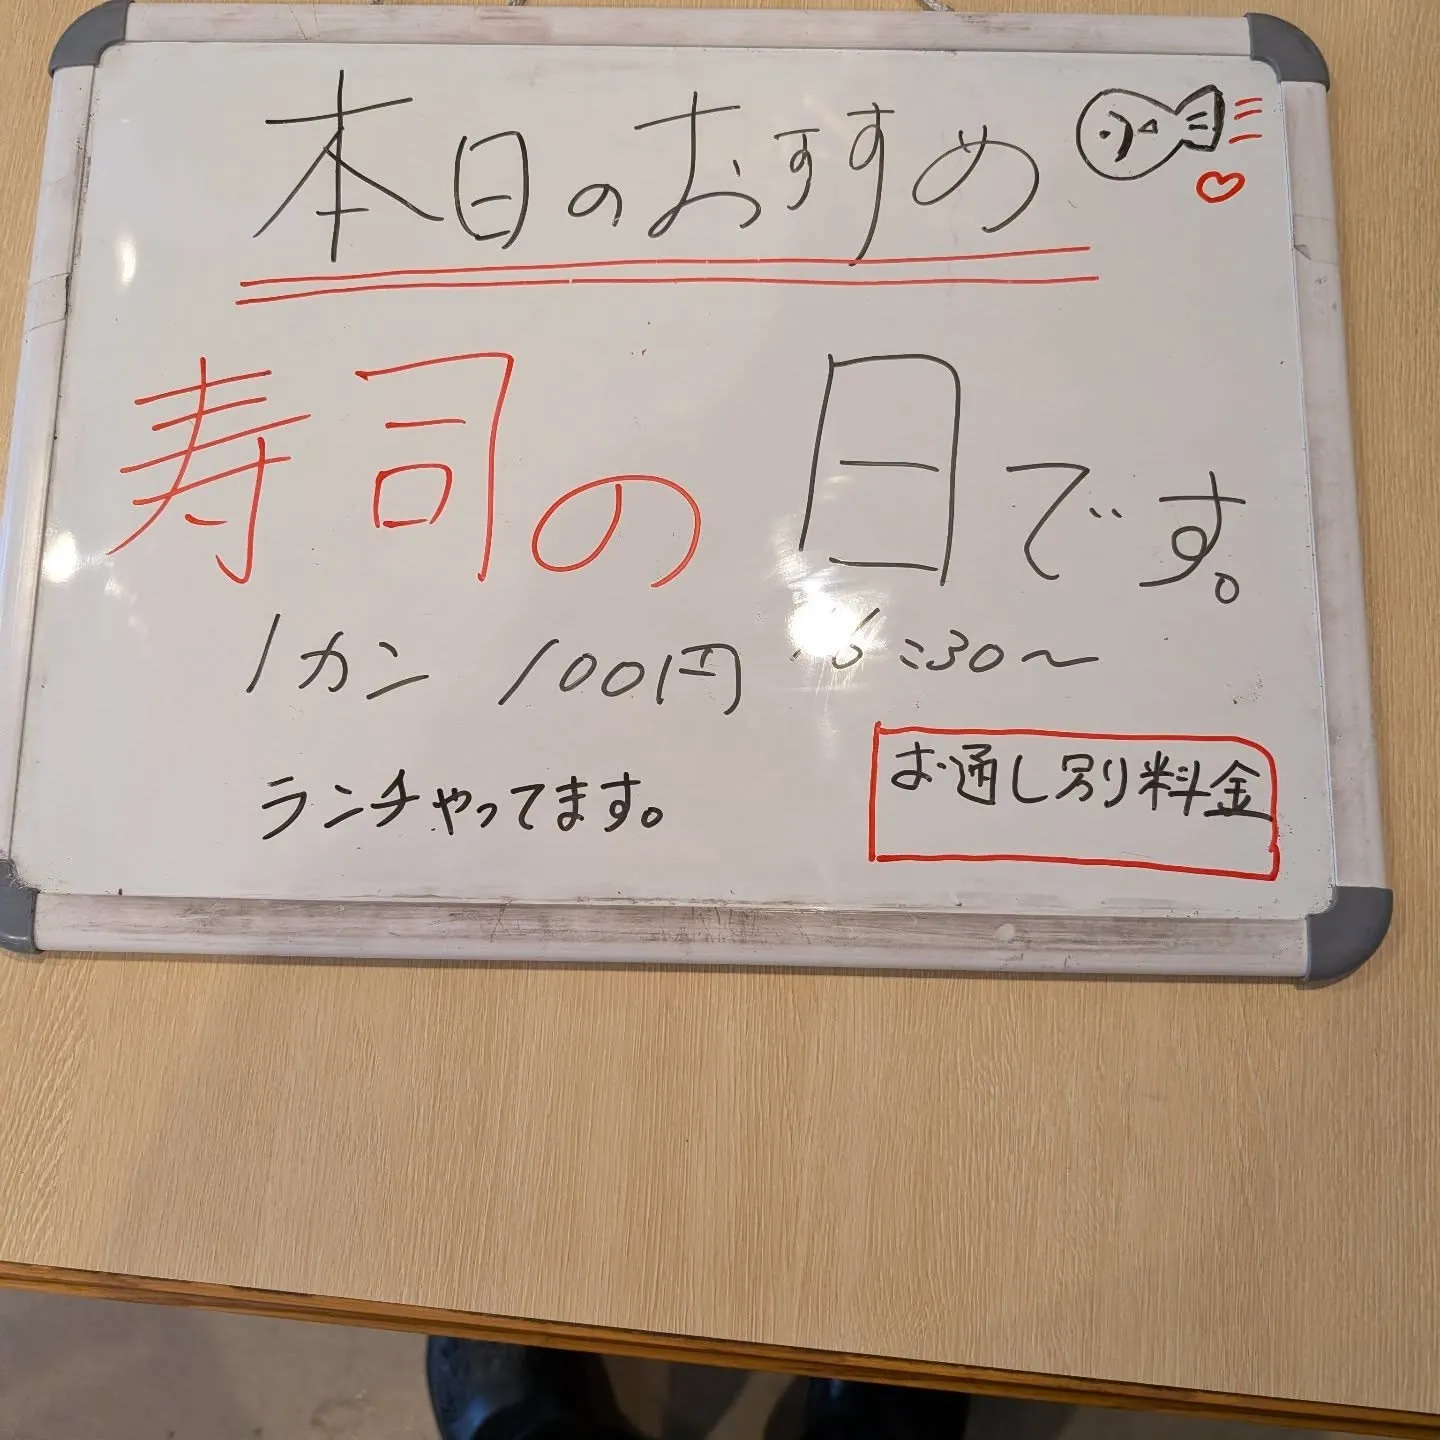 本日のおすすめ
寿司の日です。
1カン 100円 16:30〜
ランチやってます。
お通し別料金